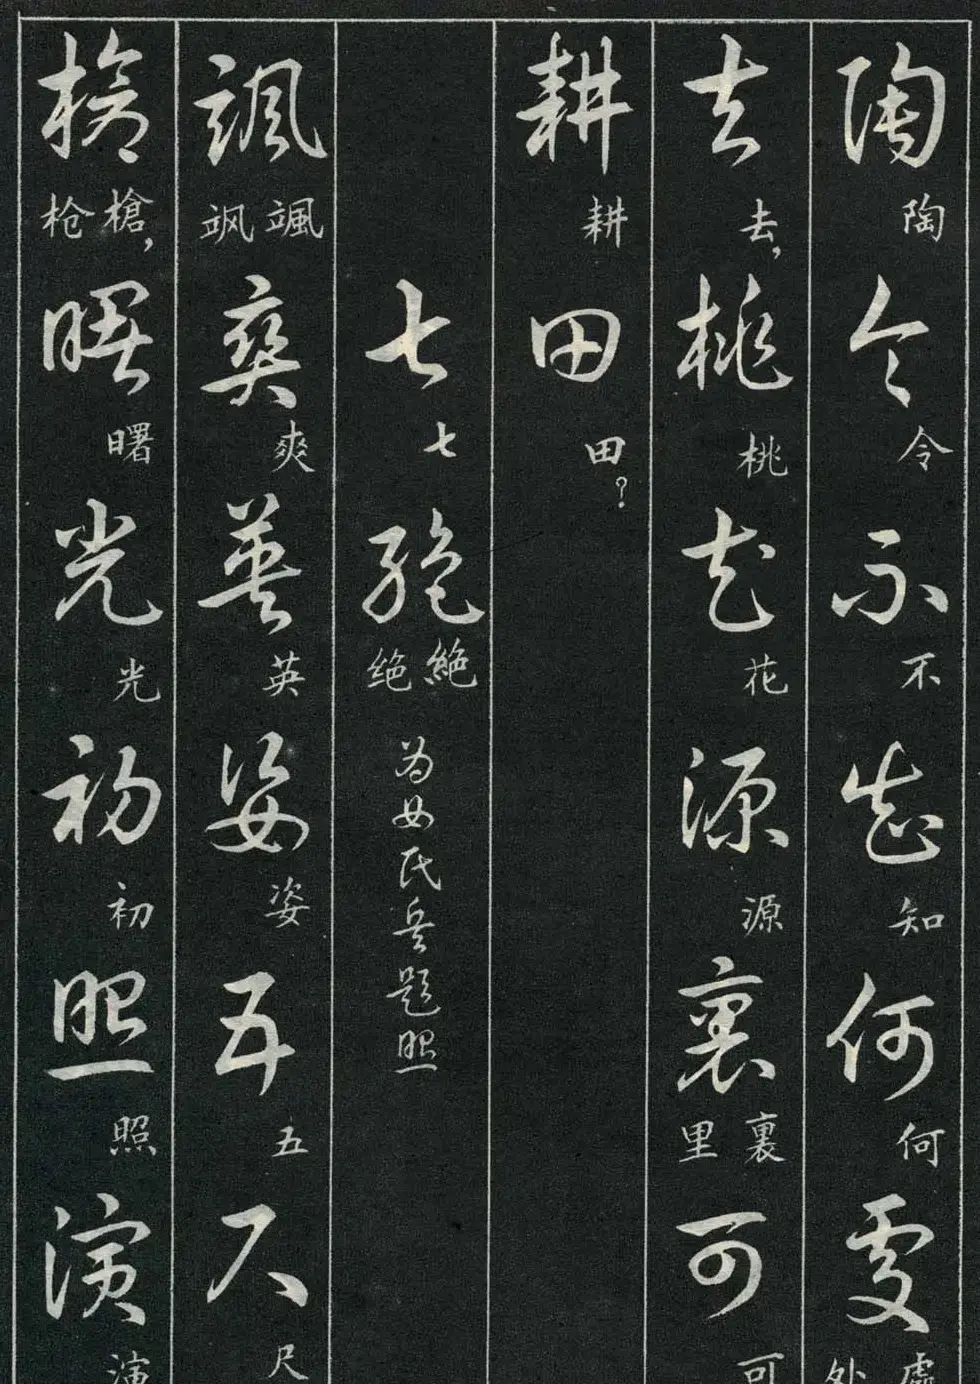 陶陶令令不不知知何何處處处
去去，桃桃花花源源裏裏里可可
耕耕田田？
七七絕絕绝为女民兵題照
颯颯飒爽爽英英姿姿五五尺尺
槍槍，枪曙曙光光初初照照演演